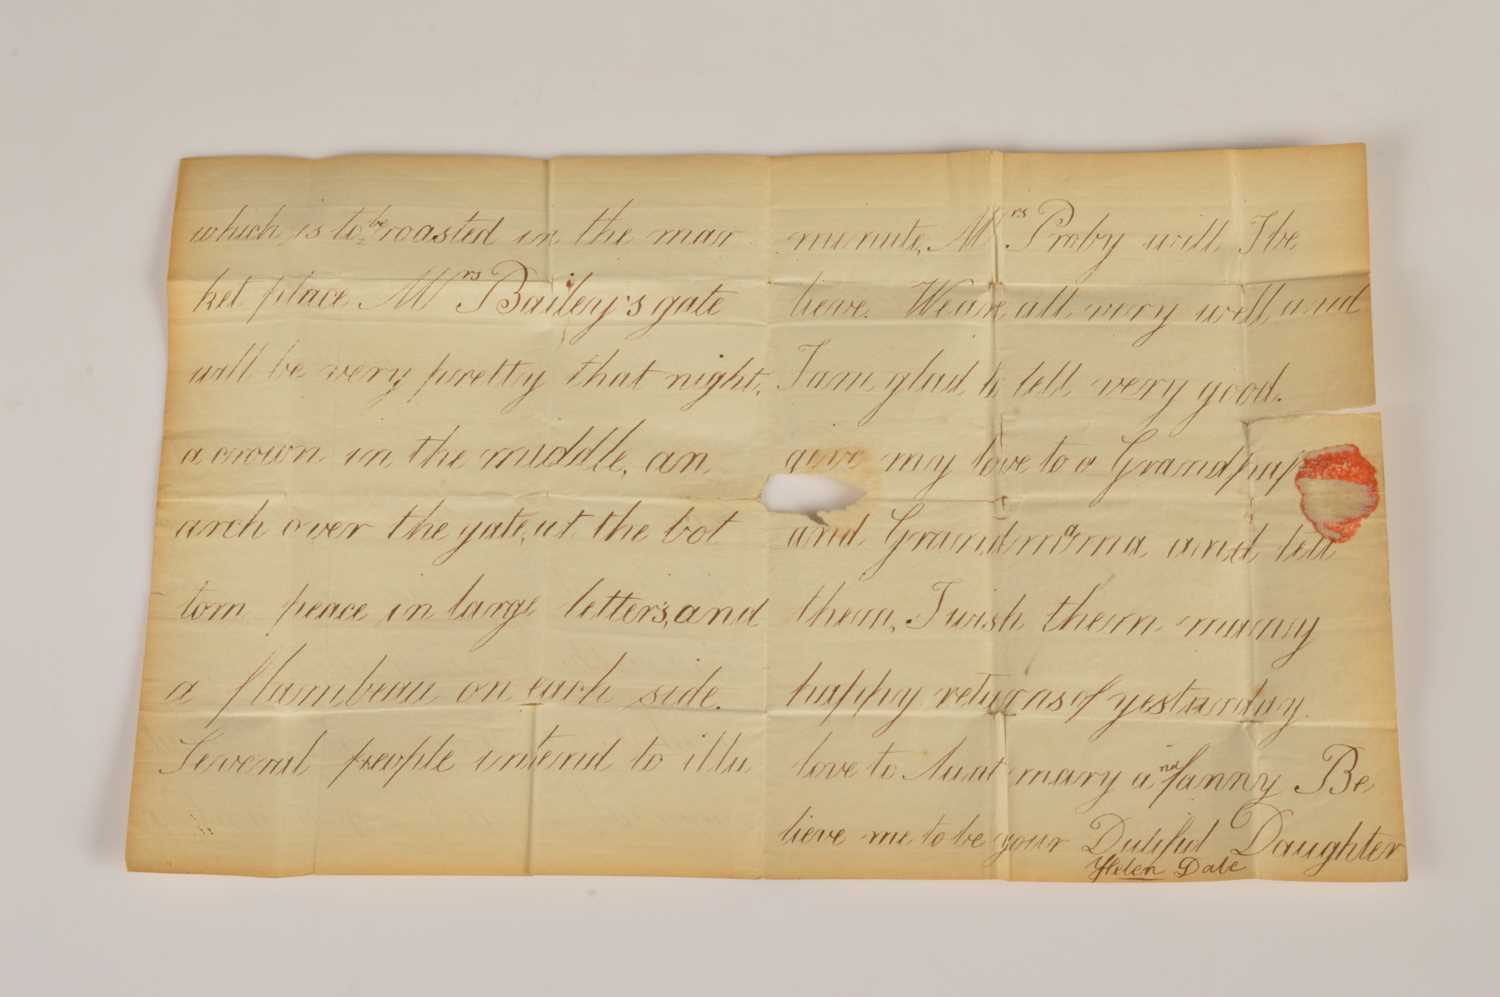 which is to be roasted in the mar
ket place Mrs Bailey's gate
will be very pretty that night,
a crown in the middle, an
arch over the gate, at the bot
tom peace in large letters, and
a flambeau on each side.
Several people intend to illu
minate, Mrs Proby will I be
lieve. We are all very well and
I am glad to tell very good.
give my love to Grandpap
and Grandmama and tell
them, I wish them many
happy returns of yesturday.
love to Aunt mary and fanny Be
lieve me to be your Dutiful Daughter
Helen Dale